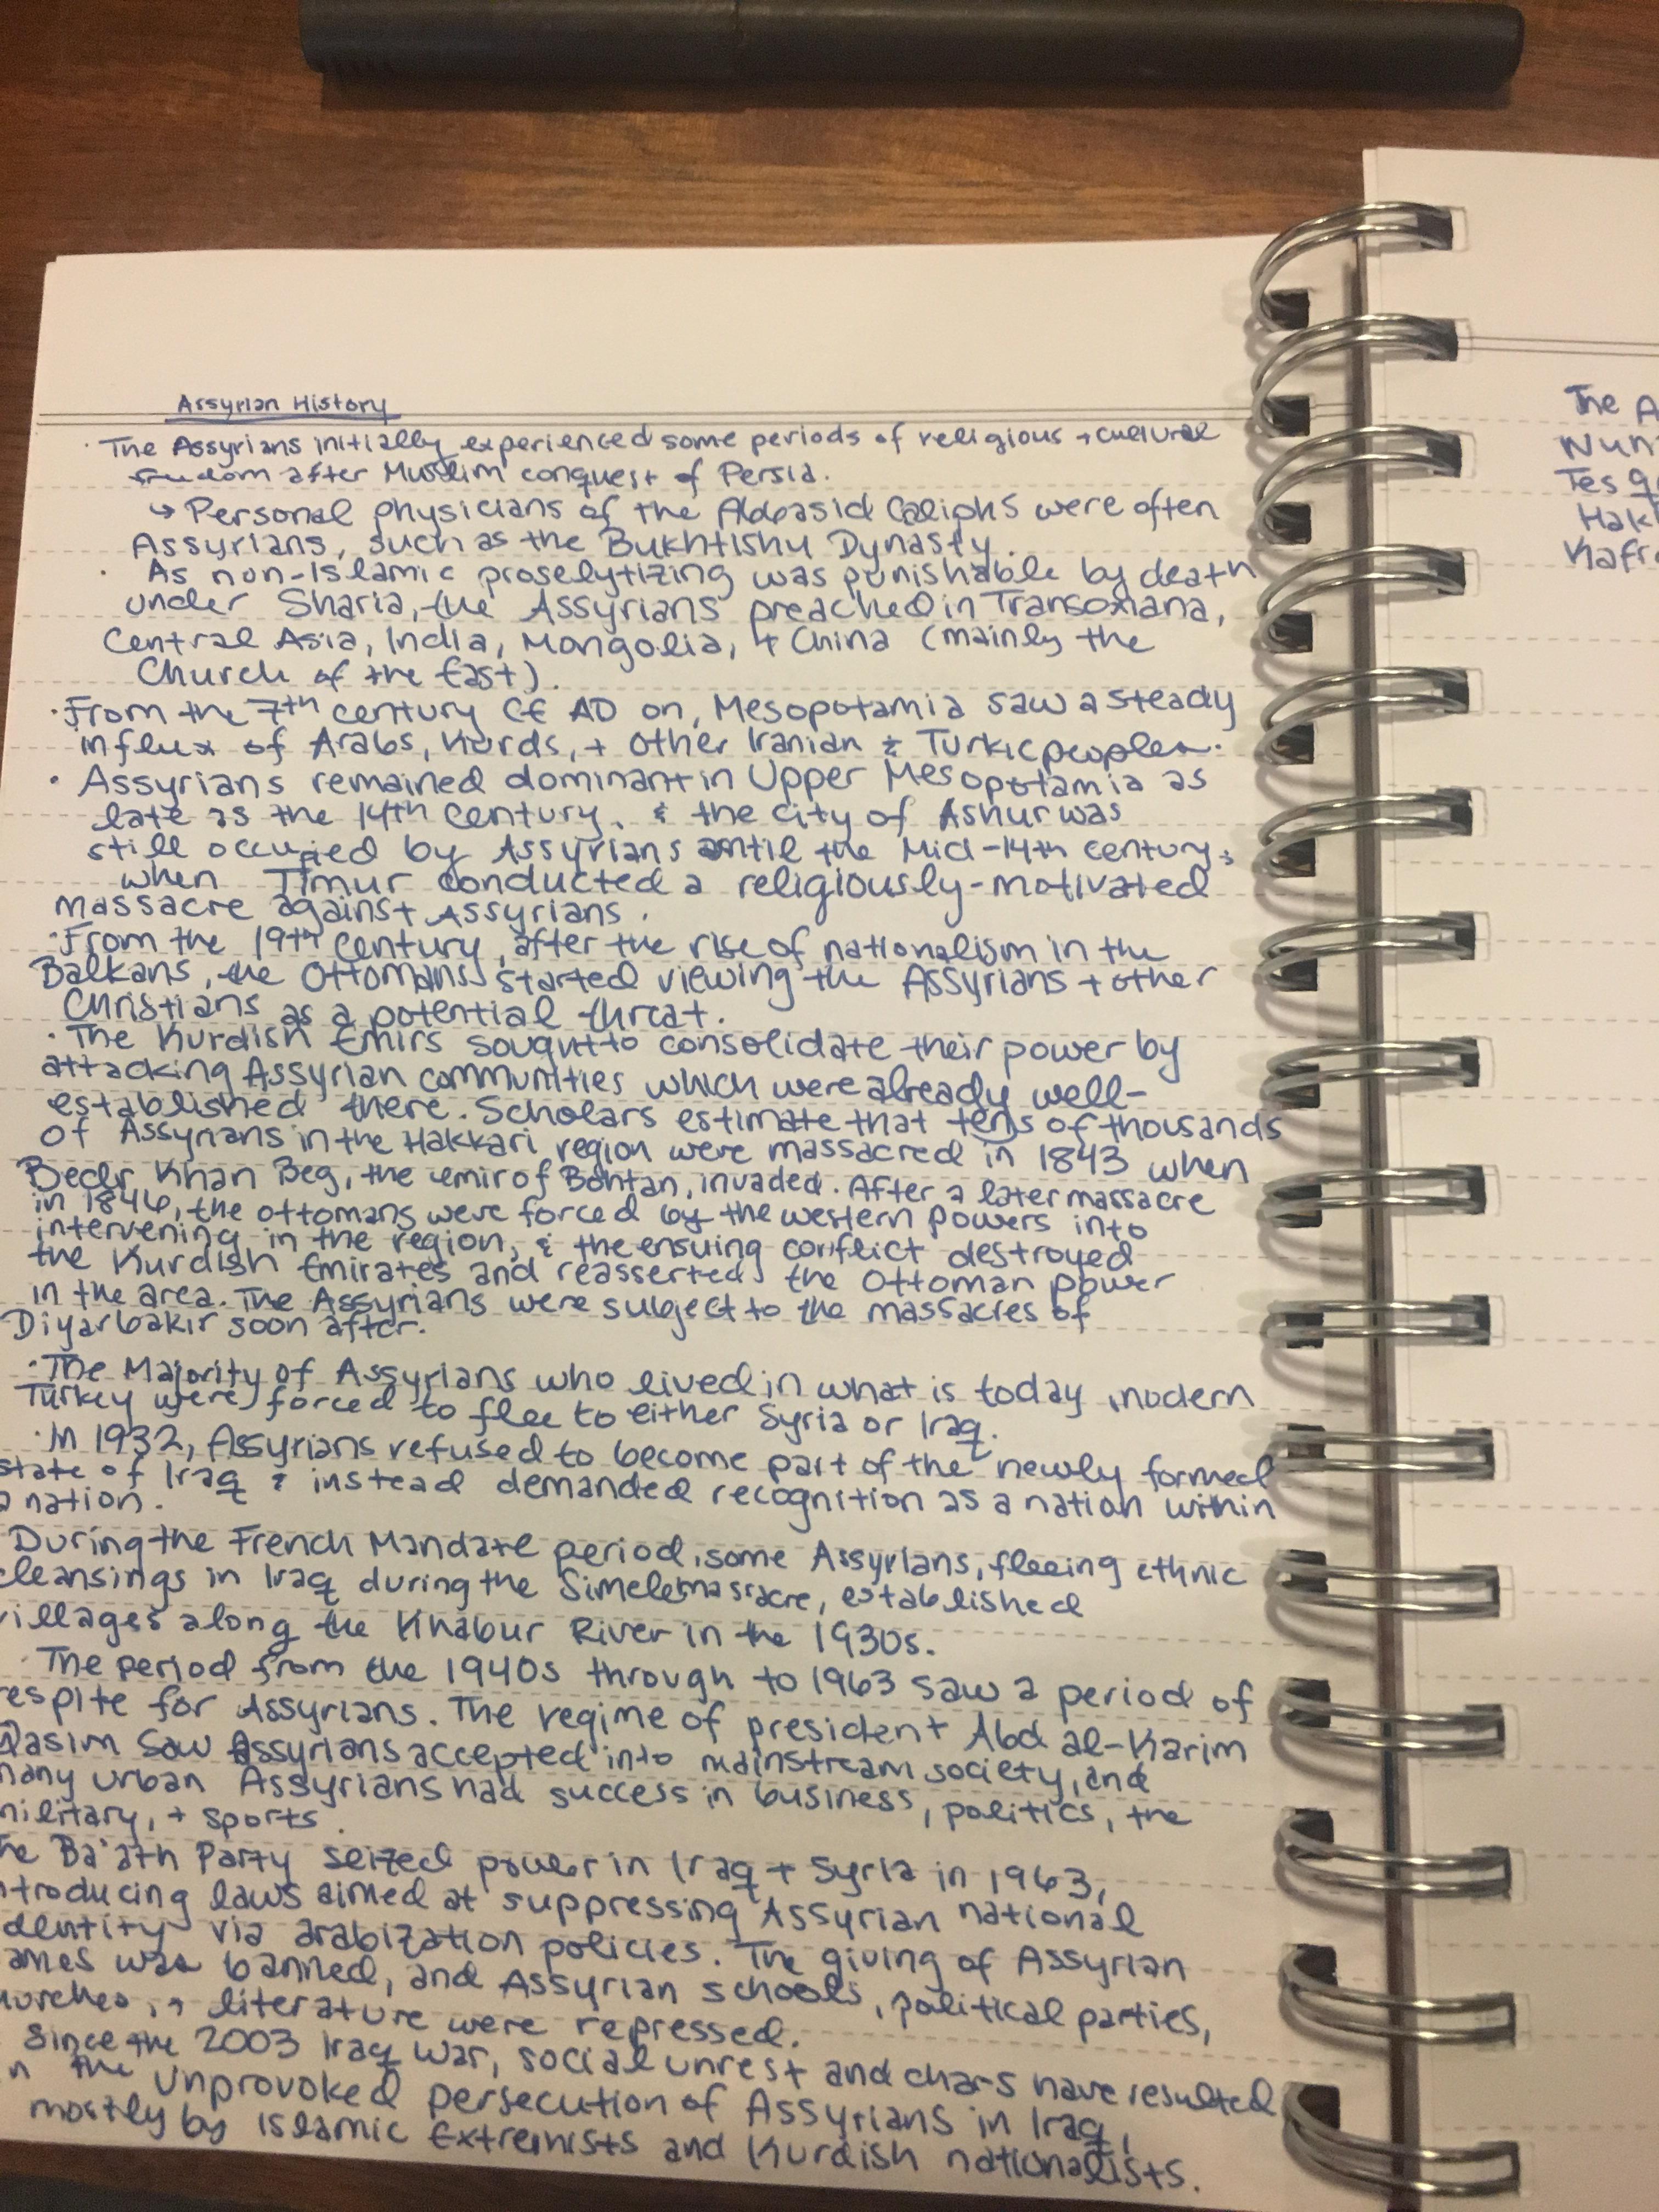 Assyrian History
· The Assyrians initially experienced some periods of religious + cultural
freedom after Muslim conquest of Persia.
↳ Personal physicians of the Abbasid Caliphs were often
Assyrians, such as the Bukhtishu Dynasty.
· As non-Islamic proselytizing was punishable by death
under Sharia, the Assyrians preached in Transoxiana,
Central Asia, India, Mongolia, + China (mainly the
Church of the East).
· From the 7th century CE AD on, Mesopotamia saw a steady
influx of Arabs, Kurds, + other Iranian & Turkic peoples.
· Assyrians remained dominant in Upper Mesopotamia as
late as the 14th century, & the city of Ashur was
still occupied by Assyrians until the Mid-14th century,
when Timur conducted a religiously-motivated
massacre against Assyrians.
· From the 19th century, after the rise of nationalism in the
Balkans, the Ottomans started viewing the Assyrians + other
Christians as a potential threat.
· The Kurdish Emirs sought to consolidate their power by
attacking Assyrian communities which were already well-
established there. Scholars estimate that tens of thousands
of Assyrians in the Hakkari region were massacred in 1843 when
Bedr Khan Beg, the emir of Bohtan, invaded. After a later massacre
in 1846, the ottomans were forced by the western powers into
intervening in the region, & the ensuing conflict destroyed
the Kurdish Emirates and reasserted the Ottoman power
in the area. The Assyrians were subject to the massacres of
Diyarbakir soon after.
· The Majority of Assyrians who lived in what is today modern
Turkey were forced to flee to either Syria or Iraq.
· In 1932, Assyrians refused to become part of the newly formed
state of Iraq & instead demanded recognition as a nation within
a nation.
During the French Mandate period, some Assyrians, fleeing ethnic
cleansings in Iraq during the Simele massacre, established
villages along the Khabur River in the 1930s.
· The period from the 1940s through to 1963 saw a period of
respite for Assyrians. The regime of president Abd al-Karim
Qasim saw Assyrians accepted into mainstream society, and
many urban Assyrians had success in business, politics, the
military, + sports.
he Ba'ath Party seized power in Iraq + Syria in 1963,
ntroducing laws aimed at suppressing Assyrian national
dentity via arabization policies. The giving of Assyrian
ames was banned, and Assyrian schools, political parties,
hurches, + literature were repressed.
Since the 2003 Iraq War, social unrest and chaos have resulted
n the unprovoked persecution of Assyrians in Iraq,
mostly by Islamic Extremists and Kurdish nationalists.
The A
Nun
Tes q
Hak
Kafr